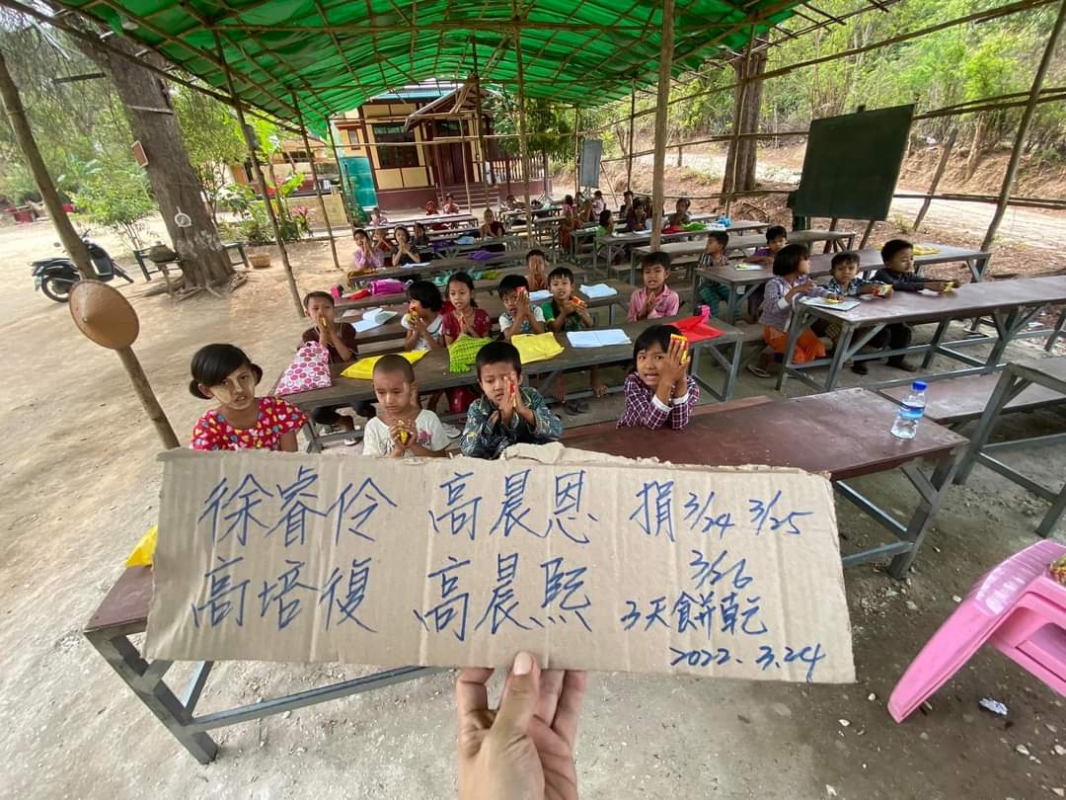 徐睿伶 高晨恩 捐 3/24 3/25
3/26
高培復 高晨熙 3天餅乾
2022.3.24